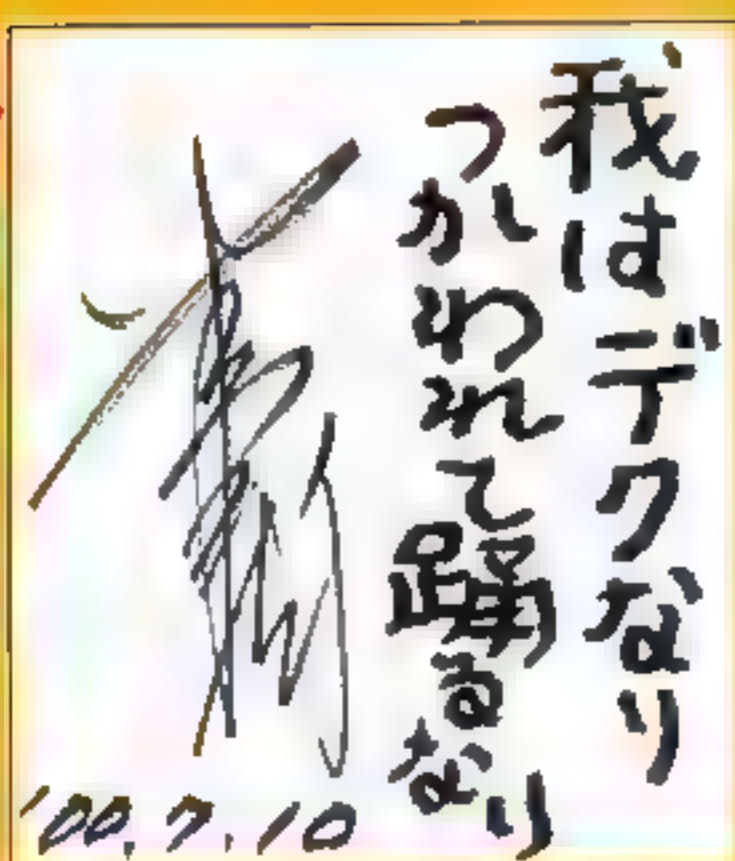 我はデクなり
つかわれて踊るなり
'00.7.10